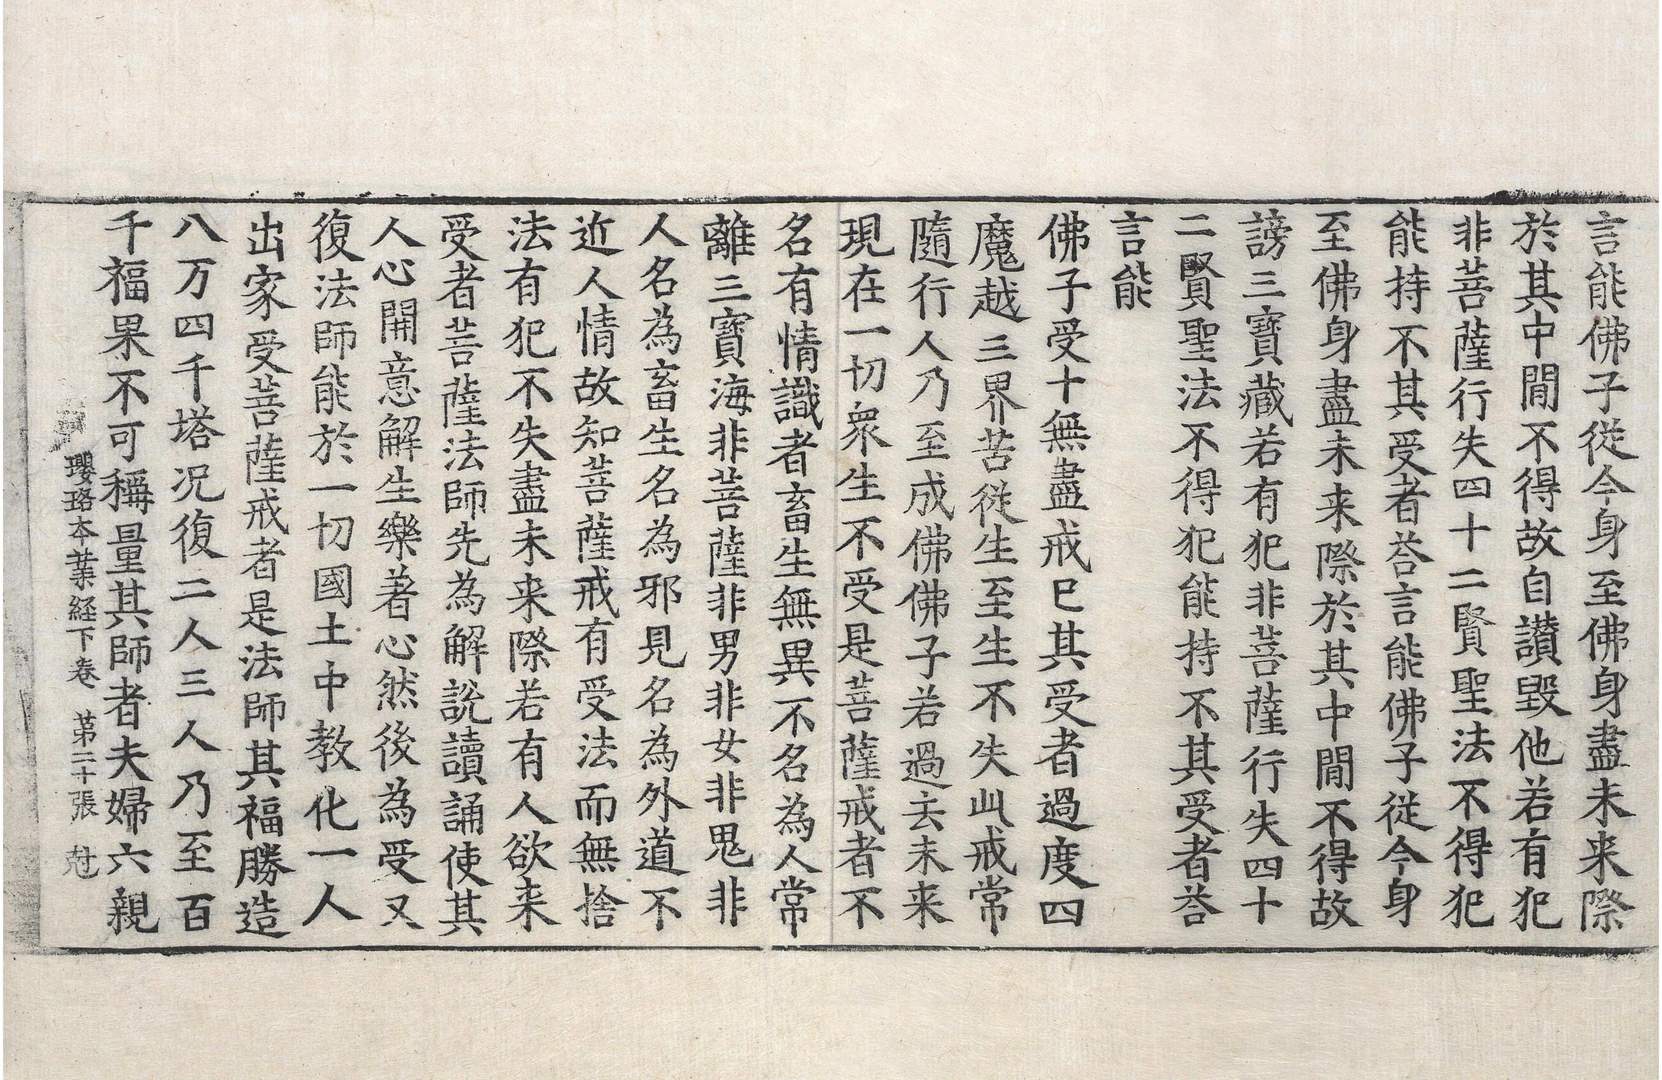 言能佛子從今身至佛身盡未来際
於其中閒不得故自讃毀他若有犯
非菩薩行失四十二賢聖法不得犯
能持不其受者荅言能佛子從今身
至佛身盡未来際於其中閒不得故
謗三寶藏若有犯非菩薩行失四十
二賢聖法不得犯能持不其受者荅
言能
佛子受十無盡戒已其受者過度四
魔越三界苦從生至生不失此戒常
隨行人乃至成佛佛子若過去未来
現在一切衆生不受是菩薩戒者不
名有情識者畜生無異不名為人常
離三寶海非菩薩非男非女非鬼非
人名為畜生名為邪見名為外道不
近人情故知菩薩戒有受法而無捨
法有犯不失盡未来際若有人欲来
受者菩薩法師先為解說讀誦使其
人心開意解生樂著心然後為受又
復法師能於一切國土中教化一人
出家受菩薩戒者是法師其福勝造
八万四千塔况復二人三人乃至百
千福果不可稱量其師者夫婦六親
瓔珞本業経下卷 苐二十張 尅